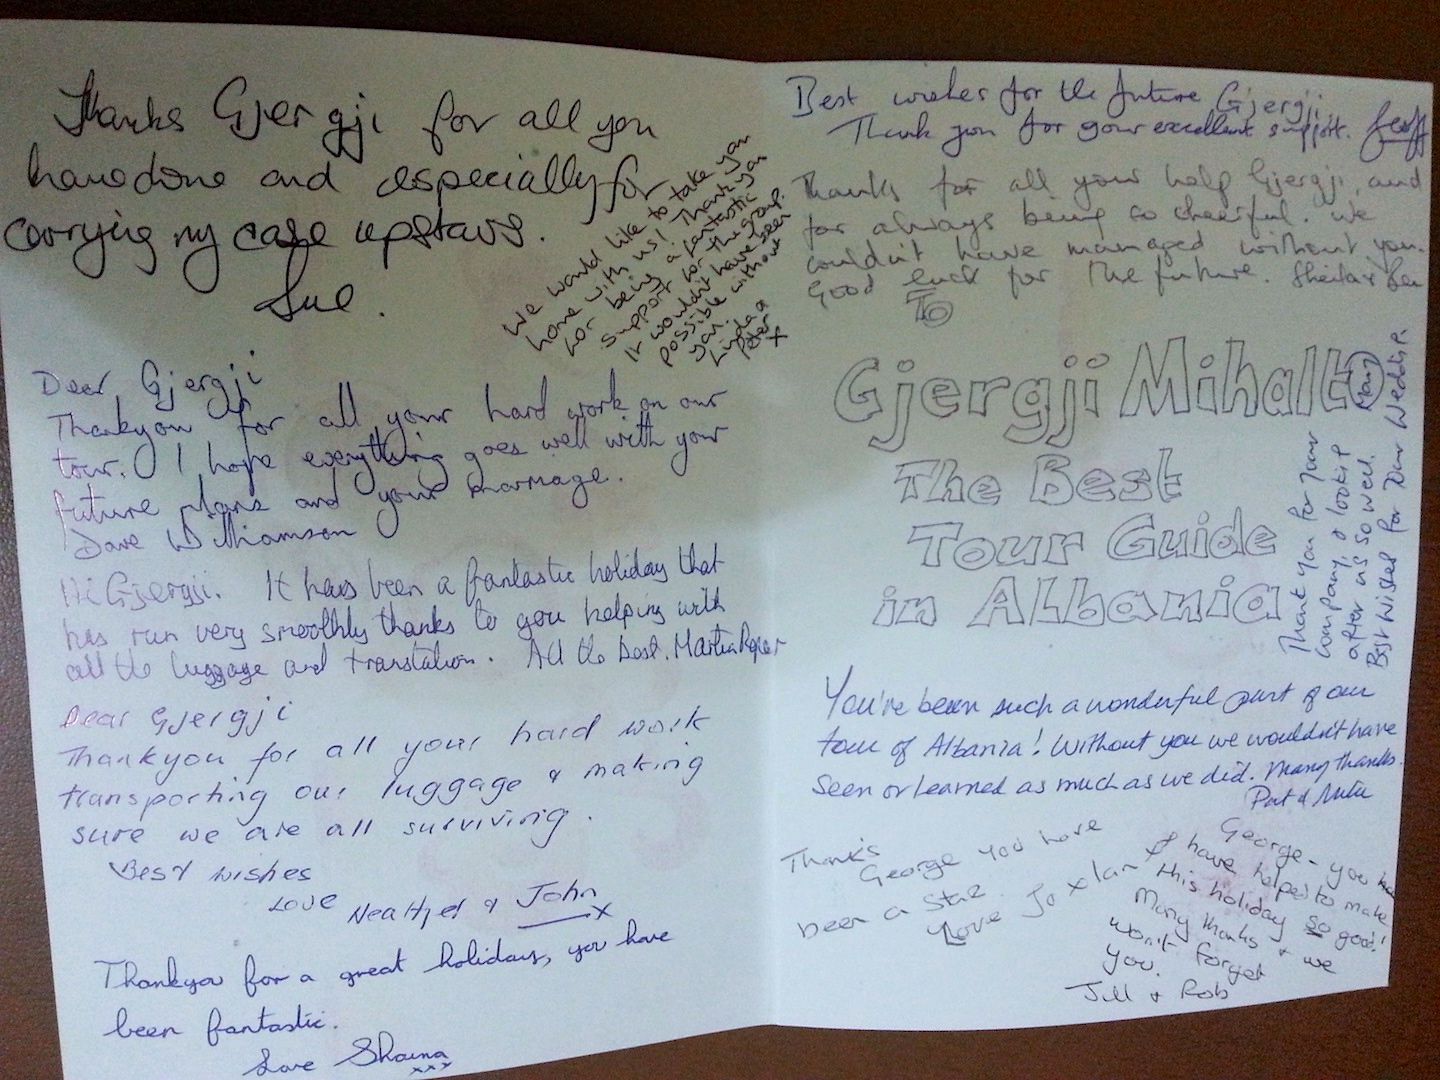 Thanks Gjergji for all you
have done and especially for
carrying my case upstairs.
Sue.
We would like to take you
home with us! Thank you
for being a fantastic
support for the group.
It wouldn't have been
possible without
you.
Linda &
Peter x
Dear Gjergji
Thankyou for all your hard work on our
tour. I hope everything goes well with your
future plans and your marriage.
Dave Williamson
Hi Gjergji. It has been a fantastic holiday that
has run very smoothly thanks to you helping with
all the luggage and translation. All the best. Martin
Dear Gjergji
Thankyou for all your hard work
transporting our luggage & making
sure we are all surviving.
Best wishes
Love Heather & John
x
Thankyou for a great holiday, you have
been fantastic.
Love Shauna
xxx
Best wishes for the future Gjergji
Thank you for your excellent support. Geoff
Thanks for all your help Gjergji, and
for always being so cheerful. We
couldn't have managed without you.
Good luck for the future. Sheila & Ben
To
Gjergji Mihalto
The Best
Tour Guide
in Albania
Many
Thank you for your
company, & lookin
after us so well.
Best wishes for your Weddin.
You've been such a wonderful part of our
tour of Albania! Without you we wouldn't have
seen or learned as much as we did. Many thanks.
Pat &
Thanks
George you have
been a star
Love Jo x Ian x
George - you
have helped to make
this holiday so good!
Many thanks & we
won't forget
you.
Jill & Rob